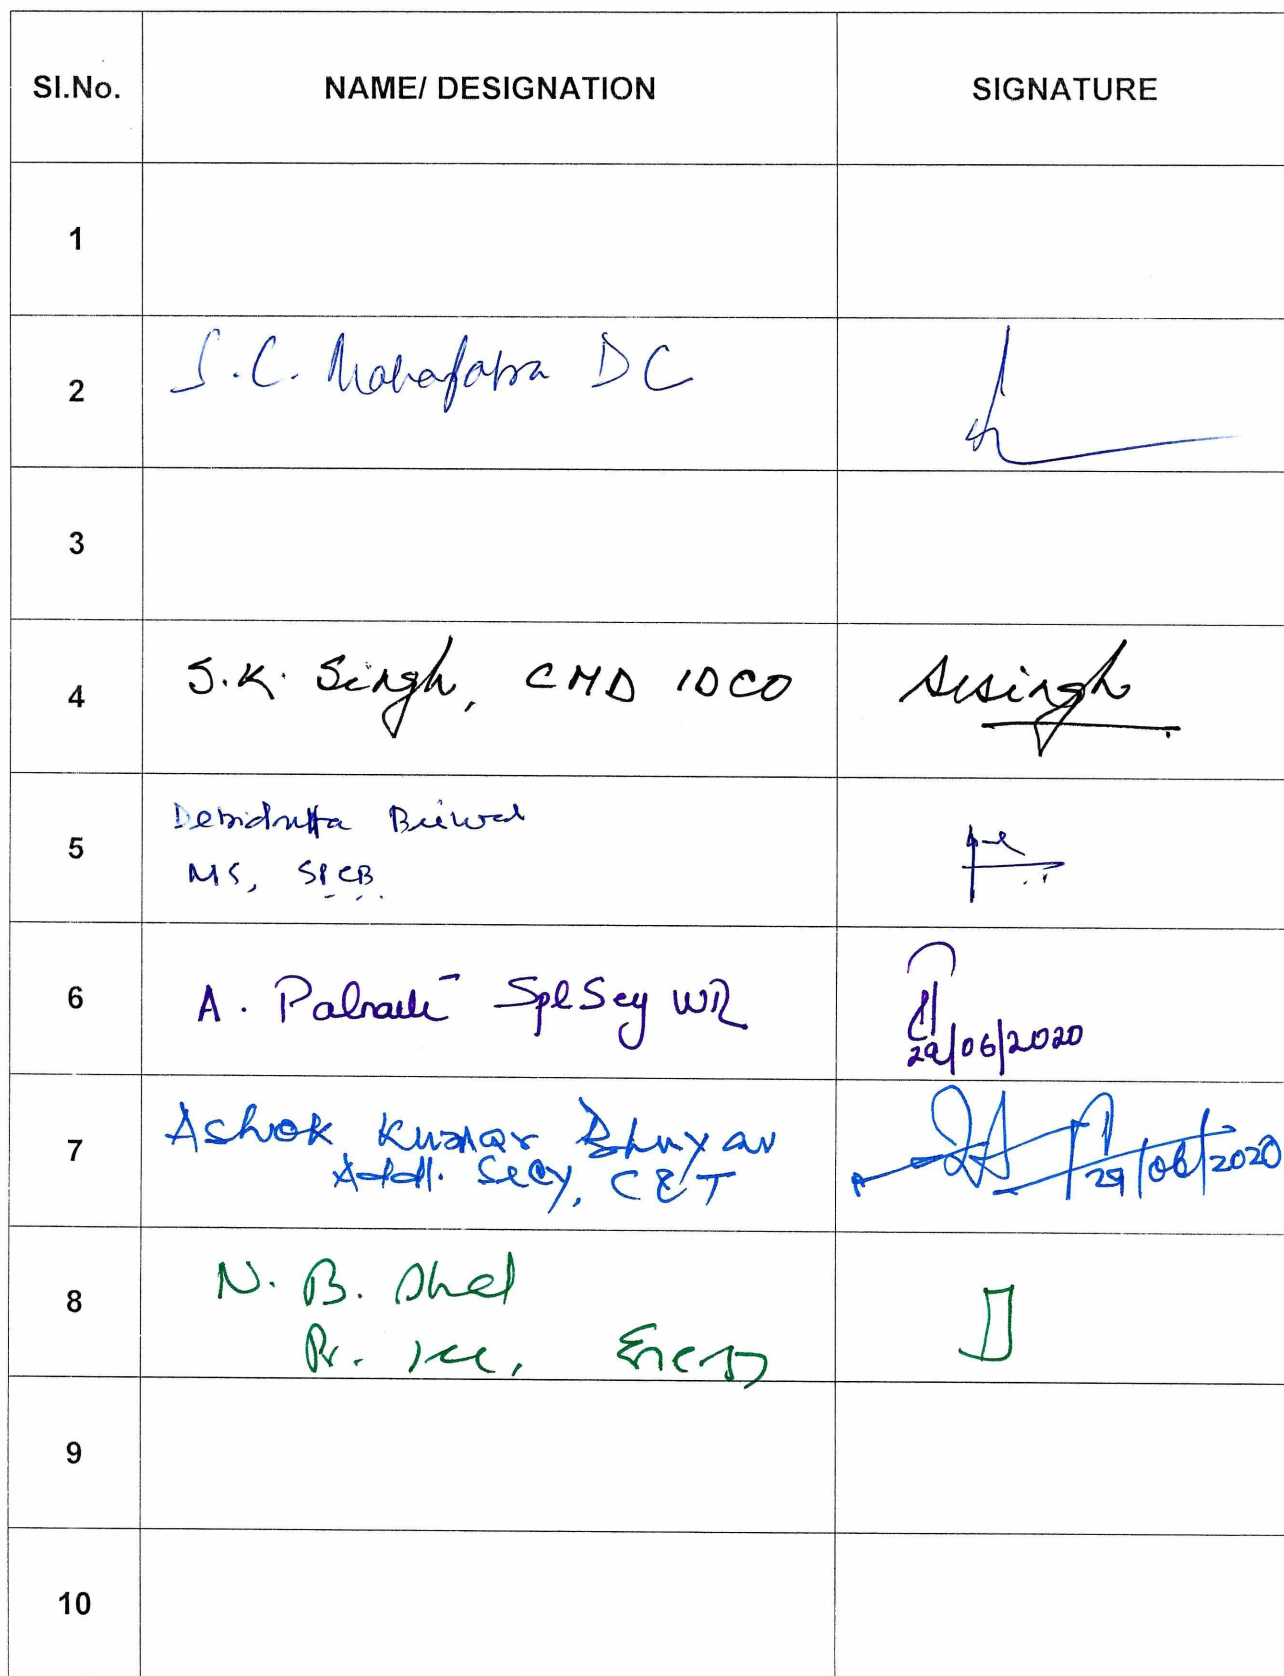 SI.No. NAME/ DESIGNATION SIGNATURE
1
2 S.C. Mahapatra DC
3
4 S.K. Singh, CMD IDCO SKSingh
5 Debidutta Biswal
MS, SPCB
6 A. Spl Secy WR
29/06/2020
7 Ashok Kumar Bhuyan
Addl. Secy, C&T 29/06/2020
8 N. B. Dhal
Pr. Sec, Energy
9
10